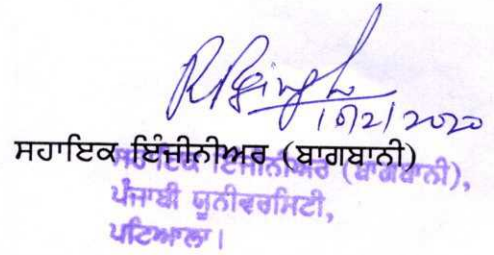 RPSingh
10/2/2020
ਸਹਾਇਕ ਇੰਜੀਨੀਅਰ (ਬਾਗਬਾਨੀ)
ਸਹਾਇਕ ਇੰਜੀਨੀਅਰ (ਬਾਗਬਾਨੀ),
ਪੰਜਾਬੀ ਯੂਨੀਵਰਸਿਟੀ,
ਪਟਿਆਲਾ।